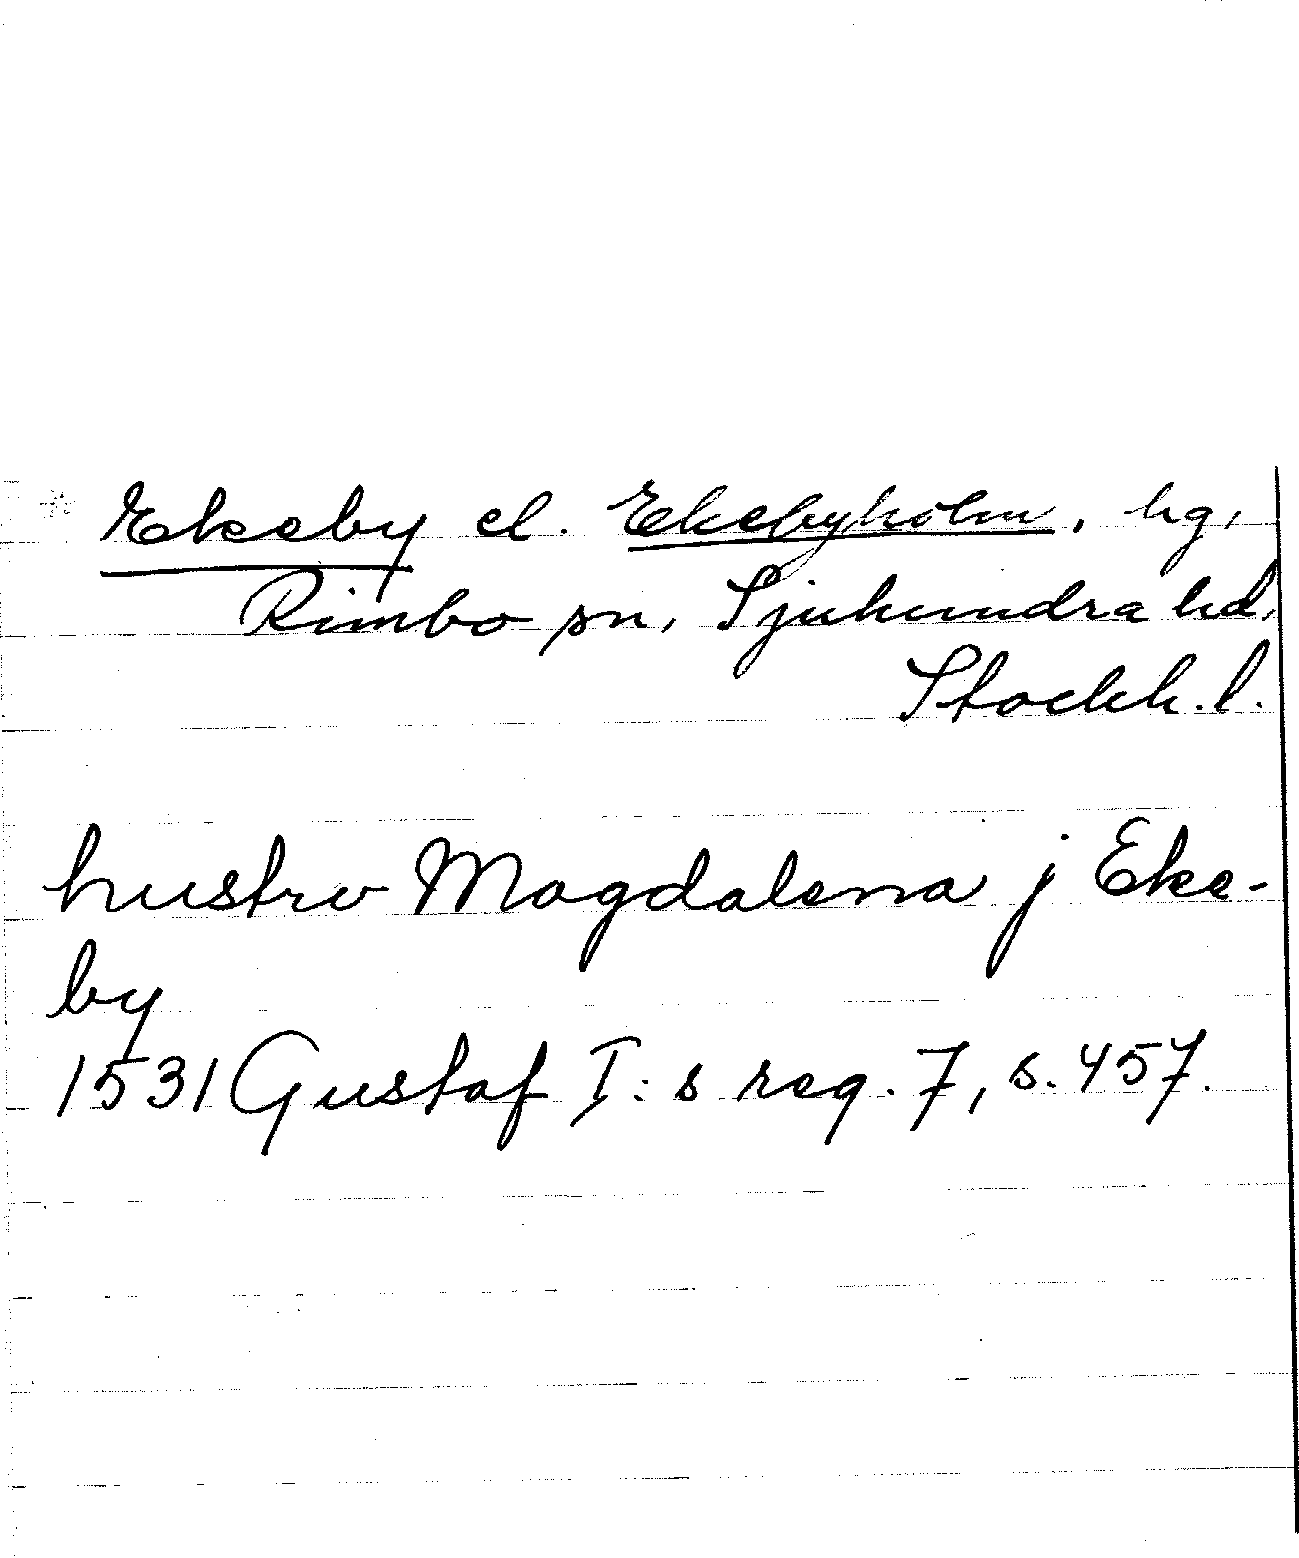 Ekeby el. Ekebyholm, hg,
Rimbo sn, Sjuhundra hd,
Stockh. l.
hustrv Magdalena j Eke-
by
1531 Gustaf I:s reg. 7, s. 457.